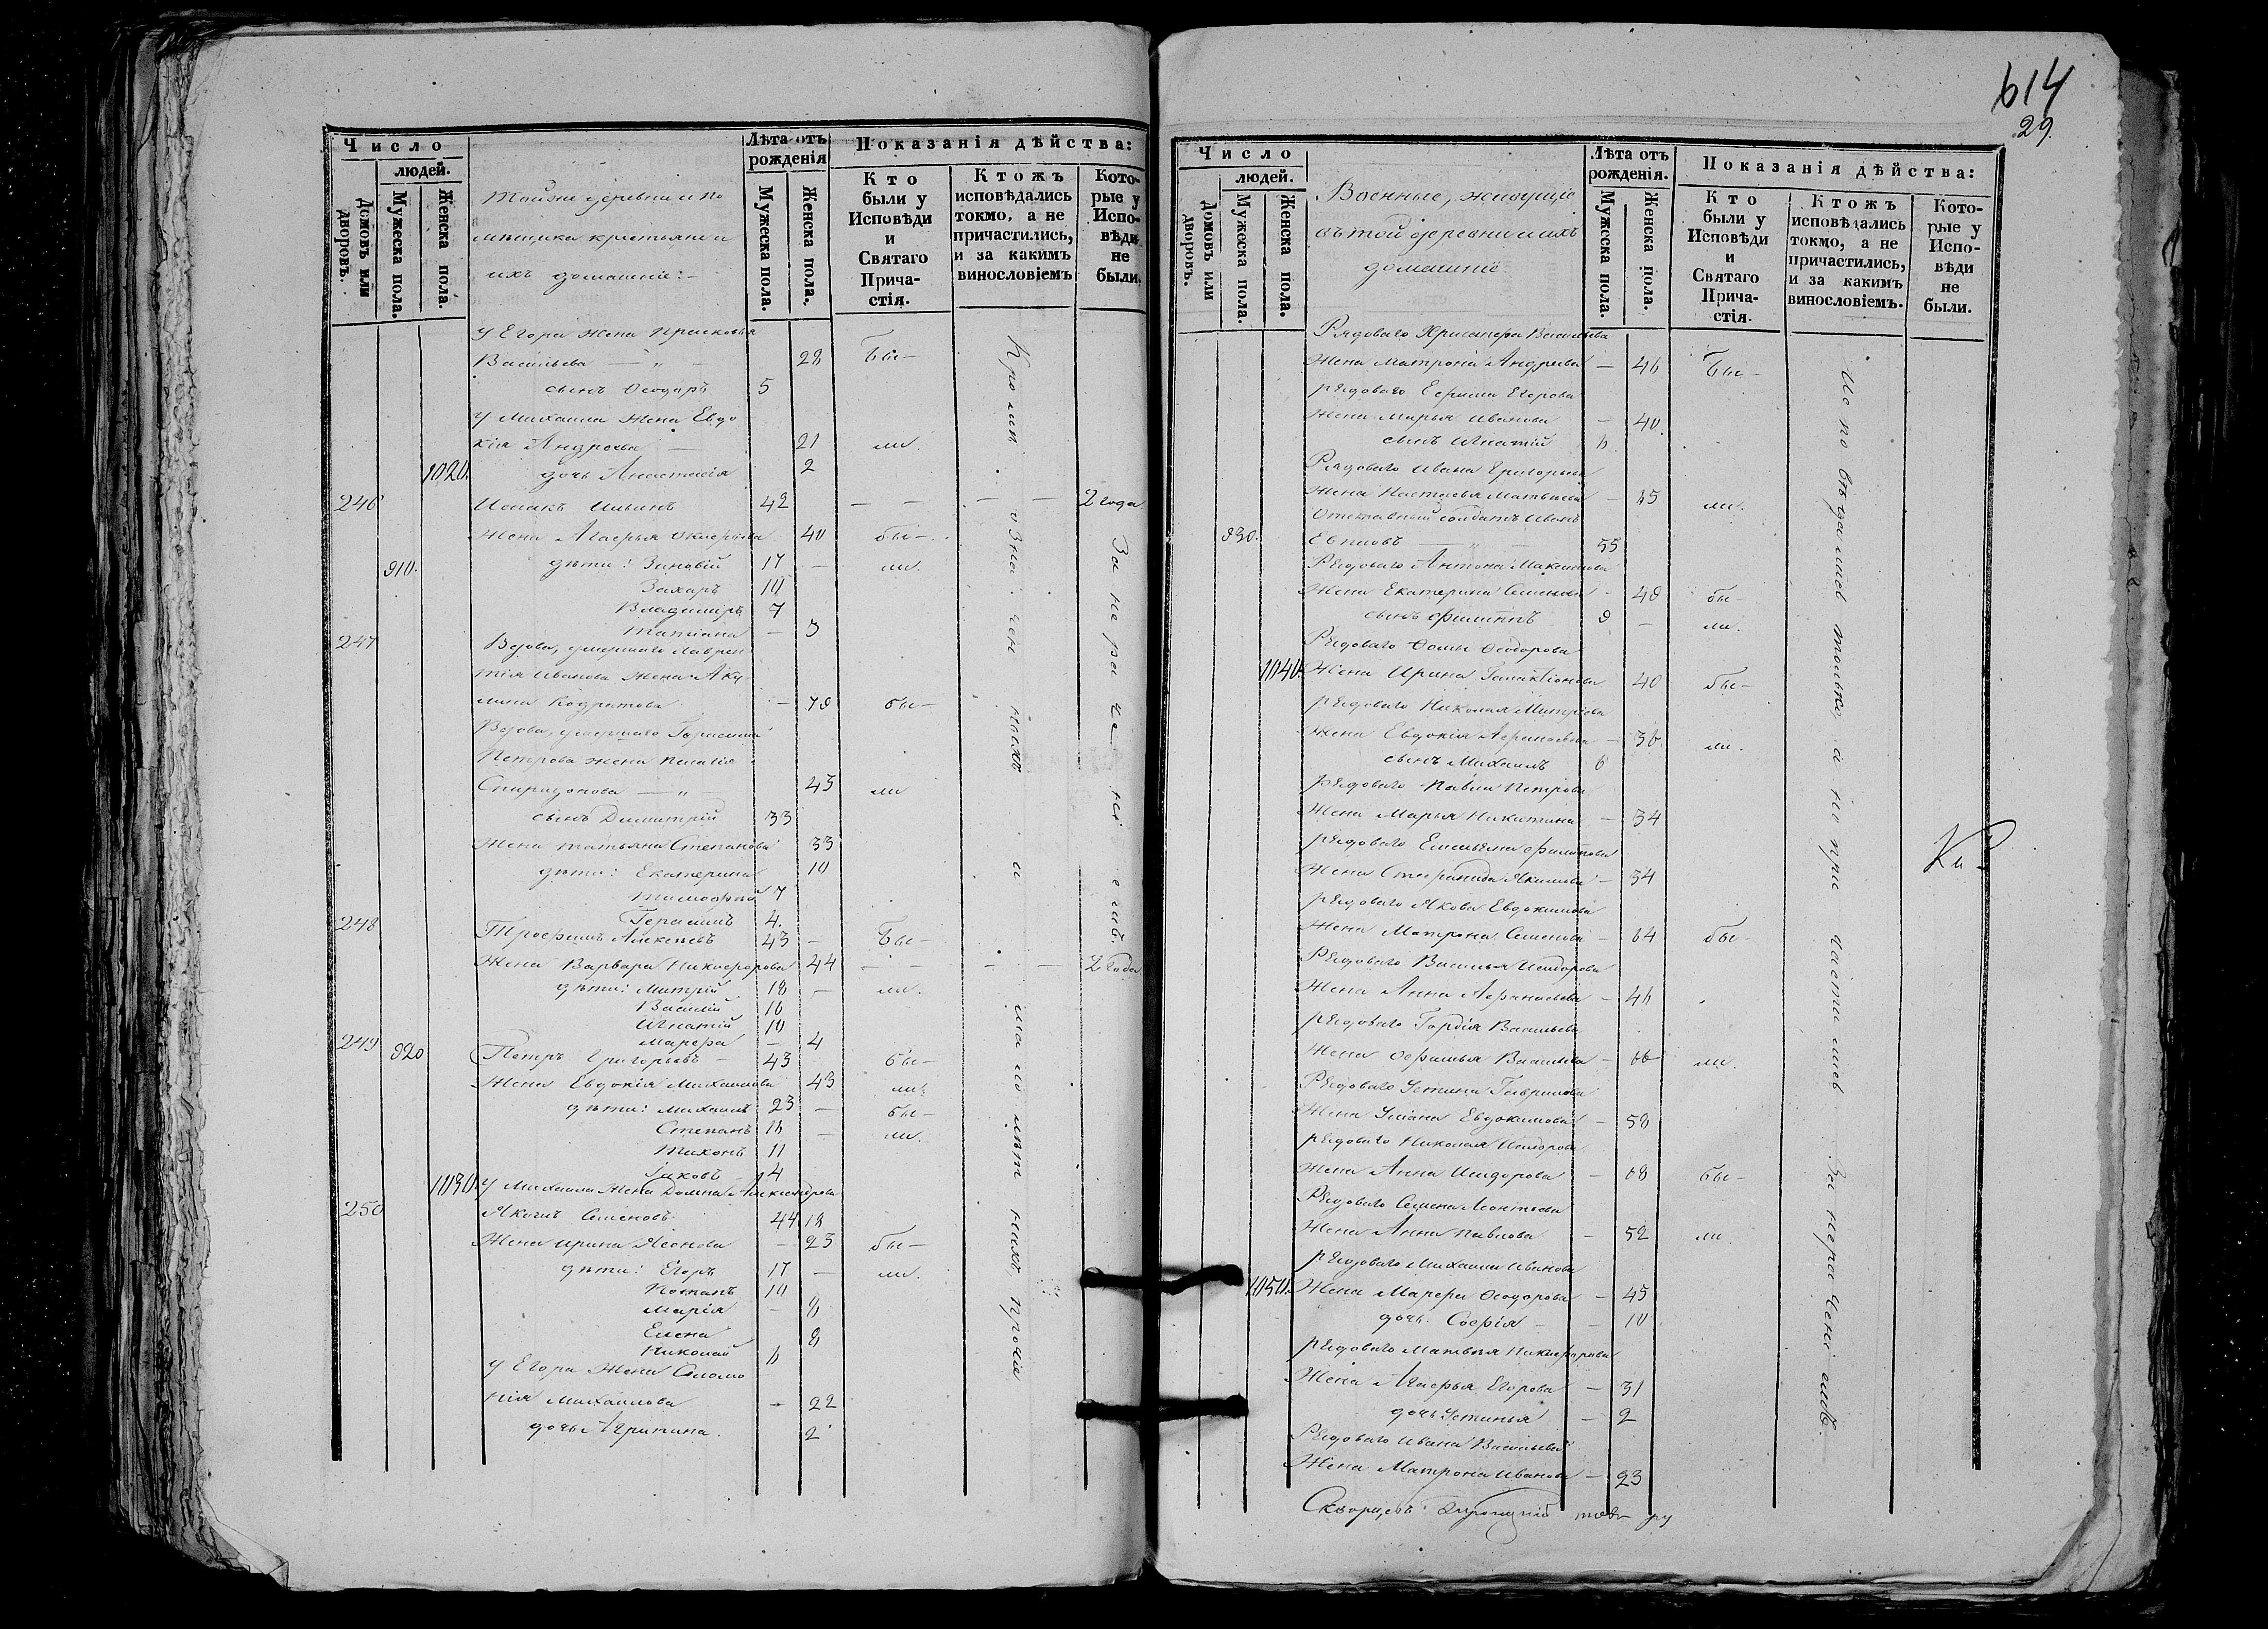 Число
людей.
Домовъ или дворовъ.
Мужеска пола.
Женска пола.
Тойже деревни и по
мѣщика крестьяне и
ихъ домашніе:
Лѣта отъ рожденія
Мужеска пола.
Женска пола.
Показанія дѣйства:
Кто были у Исповѣди и Святаго Прича-стія.
Ктожъ исповѣдались токмо, а не причастились, и за какимъ винословіемъ
Кото-рые у Испо-вѣди не были.
у Егора жена Прасковья
Васильева — „ — 28 бы-
сынъ Ѳеодоръ 5
у Михаила жена Евдо
кія Андреева — 21 ли.
1020. дочь Анастасія 2
246 Исаакъ Ильинъ 42 — — — — 2 года.
жена Агафья 40 бы-
910. дѣти: Зиновій 17 — ли.
Захаръ 10
Владиміръ 7
Татіана — 3
247 Вдова, умершаго Лаврен
тія Иванова жена Аку
лина Кодратова — 78 бы-
Вдова, умершаго Герасима
Петрова жена Пелагія
Спиридонова — „ — 43 ли
сынъ Димитрій 33
жена Татьяна Степанова 33
дѣти: Екатерина 10
Тимофей 7
Герасимъ 4.
248 Трофимъ Алексѣевъ 43 — бы-
жена Варвара Никифорова 44 — — — — 2 года
дѣти: Митрій 18 — ли.
Василій 16
Игнатій 10
Марфа — 4
249 920 Петръ Григорьевъ — 43 бы-
жена Евдокія Михаилова 43 ли.
дѣти: Михаилъ 23 — бы-
Степанъ 16 — ли.
Тихонъ 11
Іаковъ 4
1030. у Михаила жена Домна Александрова
250 Якимъ Семеновъ 44 18
жена Ирина Леонова — 23 бы-
дѣти: Егоръ 17 — ли.
10
Марія — 8
Елена 8
Николай 6
у Егора жена Соломо
нія Михаилова — 22
дочь Агрипина. 2
Кромѣ означенныхъ и малолѣтнихъ прочіе
За нераченіемъ.
614
29.
Число
людей.
Домовъ или дворовъ.
Мужеска пола.
Женска пола.
Военные, живущіе
въ той деревни и ихъ
домашніе
Лѣта отъ рожденія.
Мужеска пола.
Женска пола.
Показанія дѣйства:
Кто были у Исповѣди и Святаго Прича-стія.
Ктожъ исповѣдались токмо, а не причастились, и за какимъ винословіемъ.
Кото-рые у Испо-вѣди не были.
Рядоваго Васильева
жена Матрона Андреева — 46 бы-
рядоваго Егорова
жена Марья Иванова — 40.
сынъ Игнатій 6
Рядоваго Ивана Григорьева
жена Настасья Матвѣева — 65 ли.
Отставный солдатъ Иванъ
930. — „ — 55
Рядоваго Антона Максимова
жена Екатерина Семенова — 48 бы-
сынъ Филиппъ 9 — ли.
Рядоваго Ѳомы Ѳеодорова
1040. жена Ирина Галактіонова 40 бы-
рядоваго Николая Митріева
жена Евдокія Афанасьева — 36. ли.
сынъ Михаилъ 6
рядоваго Павла Петрова
жена Марья Никитина — 34
рядоваго Емельяна Филипова
жена Стефанида Якимова — 34
рядоваго Якова Евдокимова
жена Матрона Семенова — 64 бы-
Рядоваго Василья Исидорова
жена Анна Афанасьева — 46
рядоваго Гордія Васильева
жена Ѳефимья Васильева — 66 ли.
Рядоваго Устина Гаврилова
жена Уліана Евдокимова — 58
рядоваго Николая Исидорова
жена Анна Исидорова — 68 бы-
Рядоваго Семена Леонтьева
жена Анна Павлова — 52 ли.
рядоваго Михаила Иванова
1050. жена Марфа Ѳеодорова — 45
дочь Софія — — 10
рядоваго Матвѣя Никифорова
жена Агафья Егорова — 31
дочь Устинья — 2
Рядоваго Ивана Васильева
жена Матрона Иванова — 23
Исповѣдались только, а не причастились За нераченіемъ.
Скворцевъ